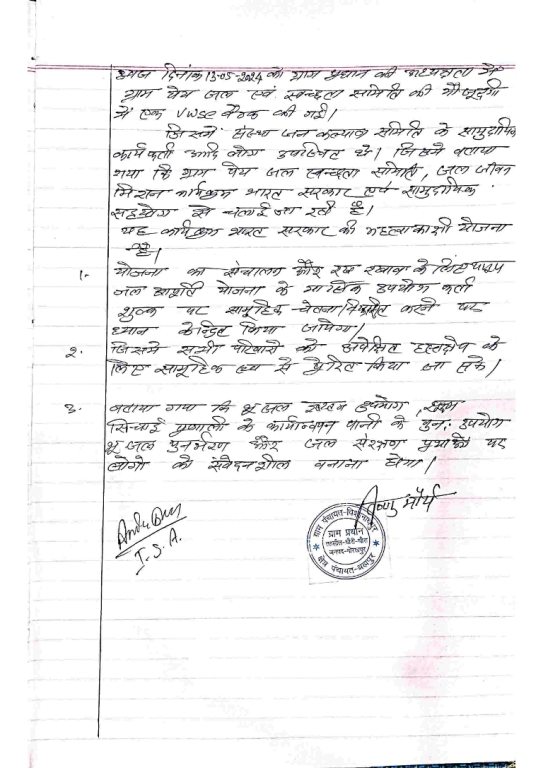 आज दिनांक 13-05-2024 को ग्राम प्रधान की अध्यक्षता में
ग्राम पेय जल एवं स्वच्छता समिति की मौजूदगी
में एक VWSC बैठक की गई।
जिसमें संस्था जन कल्याण समिति के सामुदायिक
कार्यकर्ता आदि लोग उपस्थित थे। जिसमें बताया
गया कि ग्राम पेय जल स्वच्छता समिति, जल जीवन
मिशन कार्यक्रम भारत सरकार एवं सामुदायिक
सहयोग से चलाई जा रही है।
यह कार्यक्रम भारत सरकार की महत्वाकांक्षी योजना
है।
1- योजना का संचालन और रख रखाव के लिए
जल आपूर्ति योजना के मासिक उपयोग कर्ता
शुल्क पर सामूहिक चेतना विकसित करने पर
ध्यान केन्द्रित किया जायेगा।
2. जिसमे सभी परिवारो को अपेक्षित हस्तक्षेप के
लिए सामूहिक रूप से प्रेरित किया जा सके।
3. बताया गया कि भू जल उपयोग, सूक्ष्म
सिचाई प्रणाली के कार्यान्वयन पानी के पुनः उपयोग
भू जल पुनर्भरण और जल संरक्षण पर
लोगो को संवेदनशील बनाना होगा।
विष्णु मौर्य
I.S.A.
ग्राम पंचायत-
ग्राम प्रधान
जनपद-गोरखपुर
क्षेत्र पंचायत-